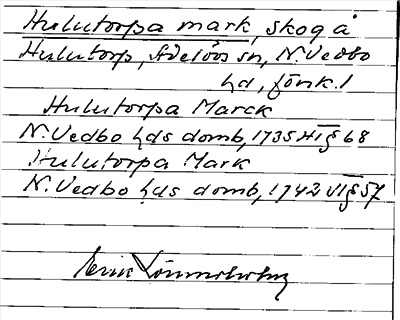 Hulutorpa mark, skog å
Hulutorp, Adelövs sn, N. Vedbo
hd, Jönk. l
Hulutorpa Marck
N. Vedbo hds domb, 1735 HT § 68
Hulutorpa Mark
N. Vedbo hds domb, 1742 VT § 57
Erik